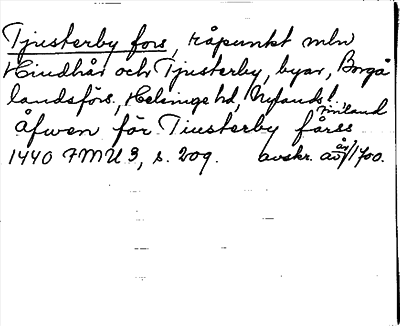 Tjusterby fors, råpunkt mln
Hindhår och Tjusterby, byar, Borgå
landsförs., Helsinge hd, Nylands l.
Finland
åfwen för Tiusterby fårss
1440 FMU 3, s. 209. avskr. av år 1700.